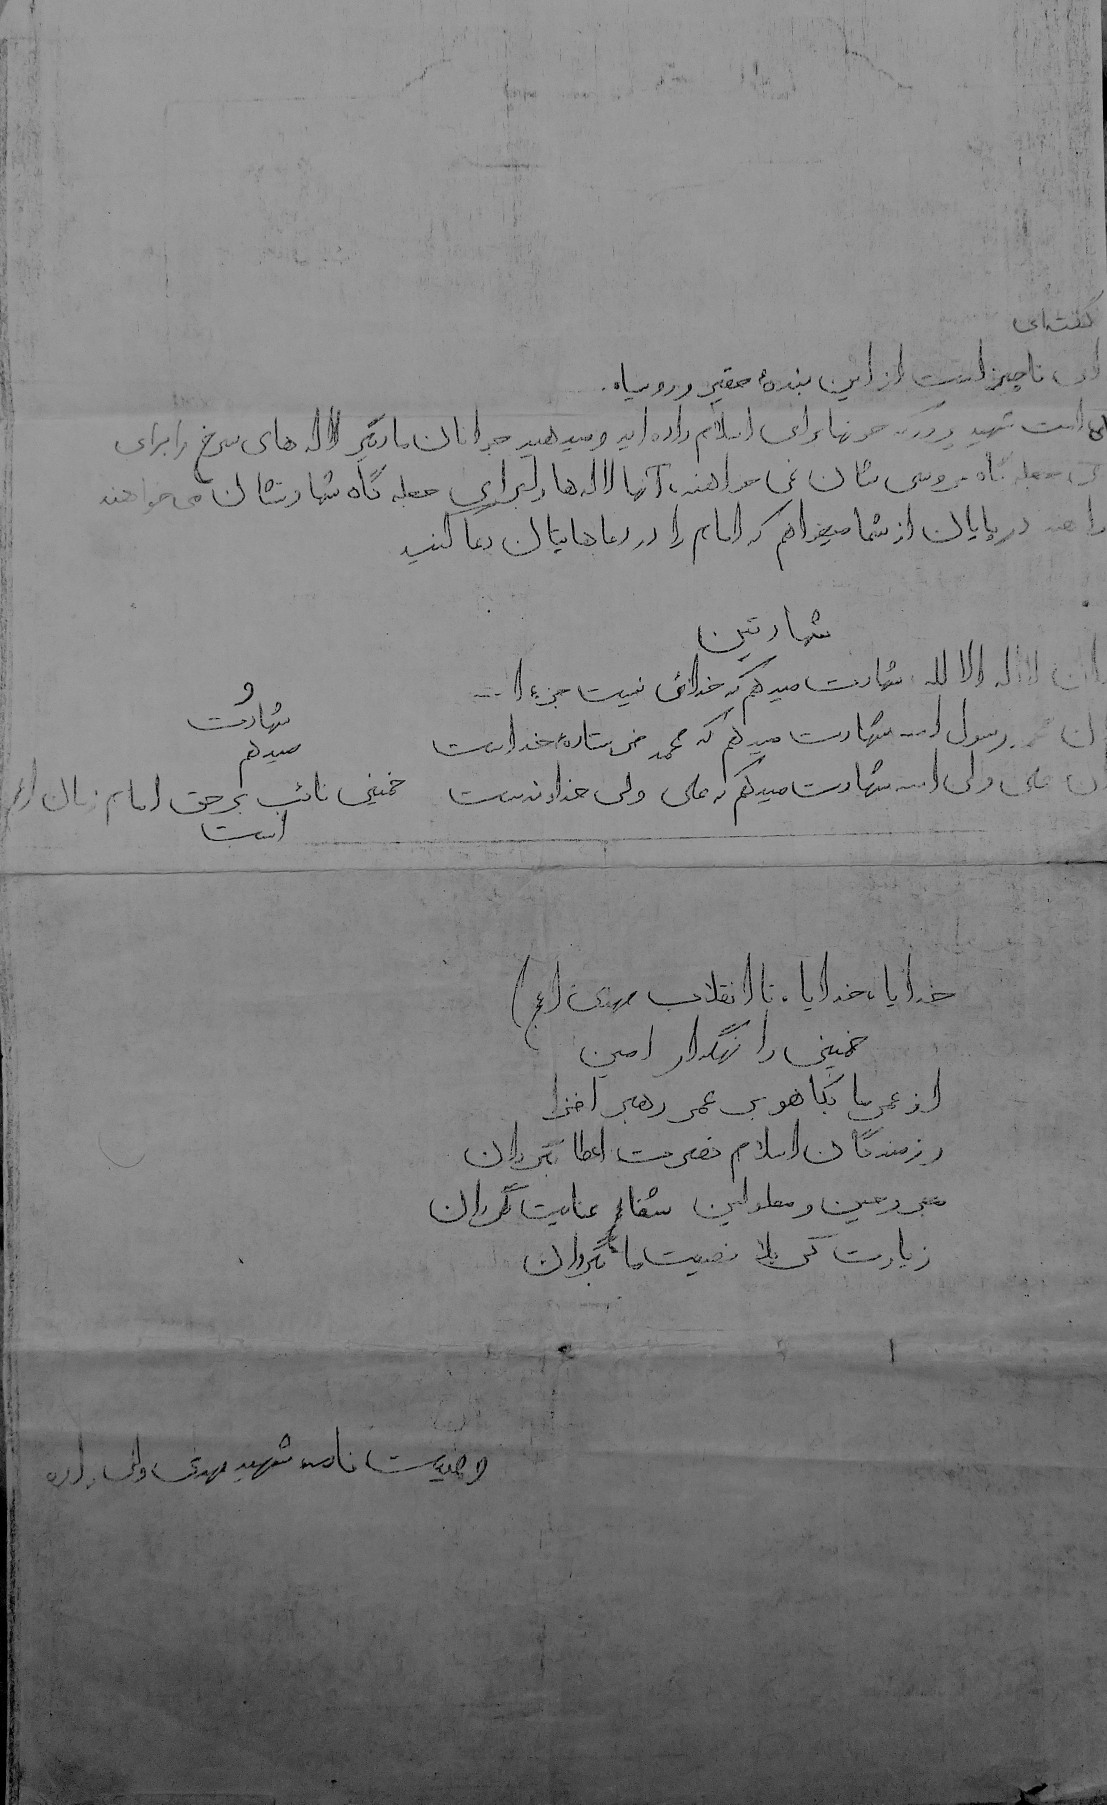 گفته‌ای
ناچیز است از این بنده حقیر و روسیاه.
است شهید پرور که خونها برای اسلام داده اید و میدهید جوانان ما دیگر لاله های سرخ را برای
حجله گاه عروسی شان نمی خواهند، آنها لاله ها را برای حجله گاه شهادتشان می خواهند
در پایان از شما میخواهم که امام را در دعاهایتان دعا کنید
شهادتین
ان لا اله الا لله شهادت میدهم که خدائی نیست جزء ا...
ان رسول ا... شهادت میدهم که محمد فرستاده خداست
ان علی ولی ا... شهادت میدهم که علی ولی خداوندست
و
شهادت
میدهم
خمینی نائب بر حق امام زمان
است
خدایا، خدایا، تا انقلاب مهدی (عج)
خمینی را نگهدار امین
از عمر ما بکاه و بر عمر رهبر افزا
رزمندگان اسلام نصرت عطا بگردان
مجروحین و معلولین شفا عنایت گردان
زیارت کربلا نصیب ما بگردان
وصیت نامه شهید مهدی